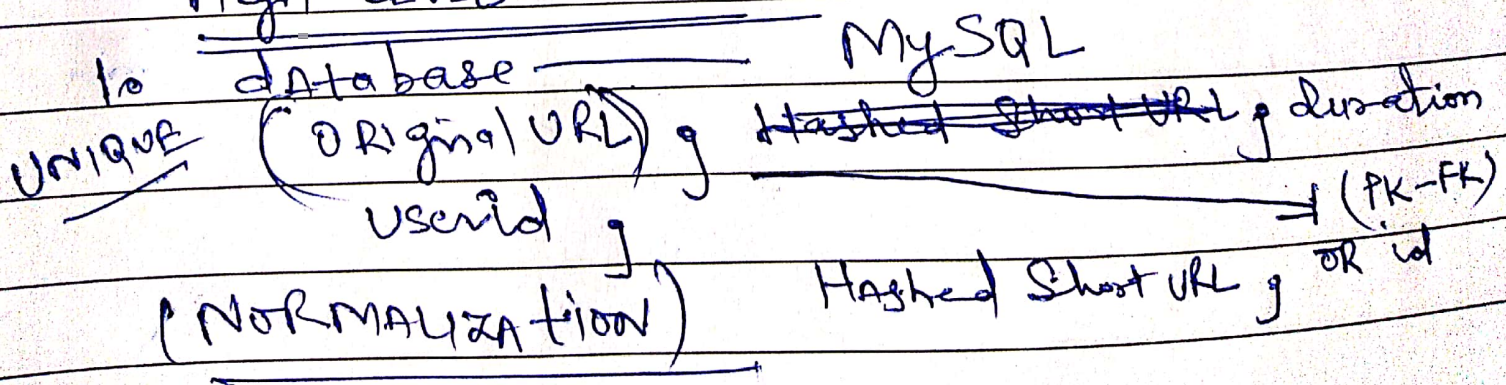 1. dAtabase — MySQL
UNIQUE (ORiginal URL), Hashed Short URL, duration
userid, (PK-FK)
(NORMALIZAtiON) HAshed Short URL, OR id